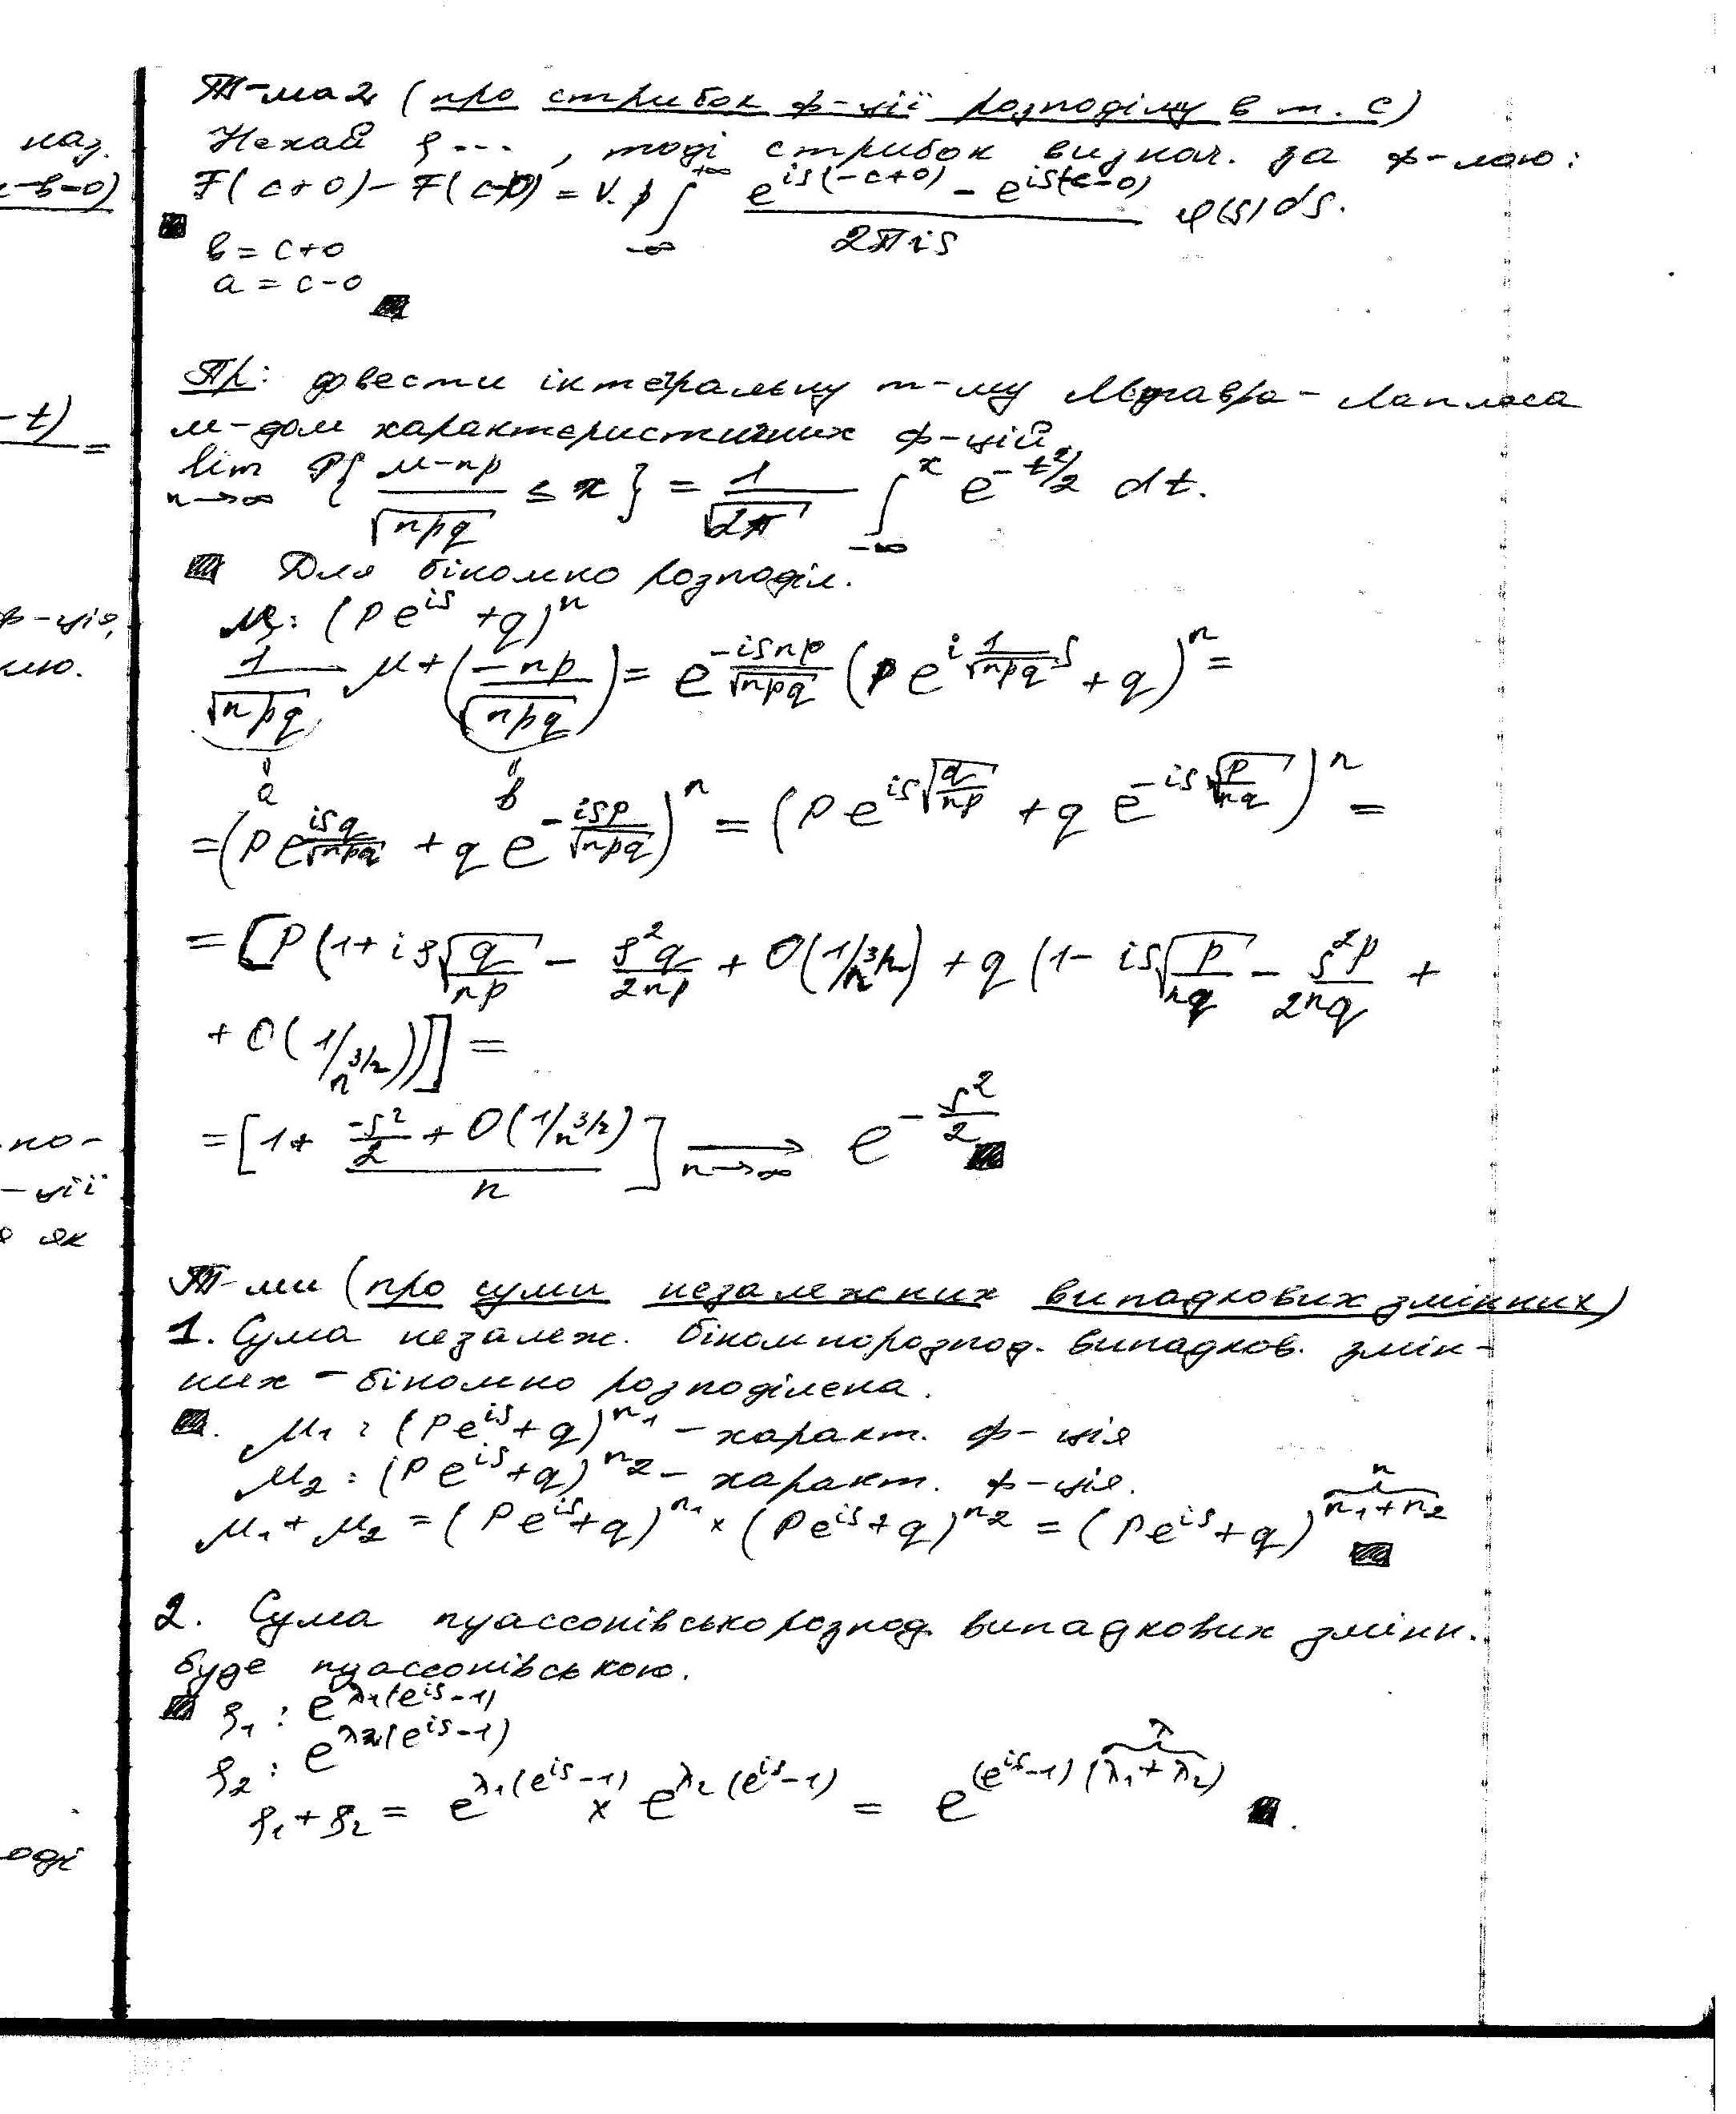 наз.
c-b=0)
-t)
=
ф-ція,
лю.
но-
-ції
як
оді
Т-ма 2 (про стрибок ф-ції розподілу в т. c)
Нехай ξ ---, тоді стрибок визнач. за ф-лою:
F(c+0) - F(c-0) = v.p ∫_{-∞}^{+∞} (e^{is(-c+0)} - e^{is(c-0)})/(2πis) φ(s) ds.
b = c+0
a = c-0
Пр: довести інтегральну т-му Муавра-Лапласа
м-дом характеристичних ф-цій
lim_{n→∞} P{ (μ-np)/√(npq) ≤ x } = 1/√(2π) ∫_{-∞}^{x} e^{-t²/2} dt.
Для біномно розподіл.
μ: (pe^{is}+q)^n
1/√(npq) μ + (-np/√(npq)) = e^{-isnp/√(npq)} (pe^{i 1/√(npq) s} + q)^n =
a b
= (pe^{isq/√(npq)} + qe^{-isp/√(npq)})^n = (pe^{is√(q/np)} + qe^{-is√(p/nq)})^n =
= [p(1+is√(q/np) - s²q/2np + O(1/n^{3/2}) + q(1-is√(p/nq) - s²p/2nq +
+ O(1/n^{3/2}))] =
= [1 + (-s²/2 + O(1/n^{3/2}))/n] →_{n→∞} e^{-s²/2}
Т-ми (про суми незалежних випадкових змінних)
1. Сума незалеж. біномнорозпод. випадков. змін-
них - біномно розподілена.
μ₁: (pe^{is}+q)^{n₁} - характ. ф-ція
μ₂: (pe^{is}+q)^{n₂} - характ. ф-ція.
μ₁+μ₂ = (pe^{is}+q)^{n₁} × (pe^{is}+q)^{n₂} = (pe^{is}+q)^{n₁+n₂} n
2. Сума пуассонівськорозпод. випадкових змінн.
буде пуассонівською.
ξ₁: e^{λ₁(e^{is}-1)}
ξ₂: e^{λ₂(e^{is}-1)}
ξ₁+ξ₂ = e^{λ₁(e^{is}-1)} × e^{λ₂(e^{is}-1)} = e^{(e^{is}-1)(λ₁+λ₂)} λ